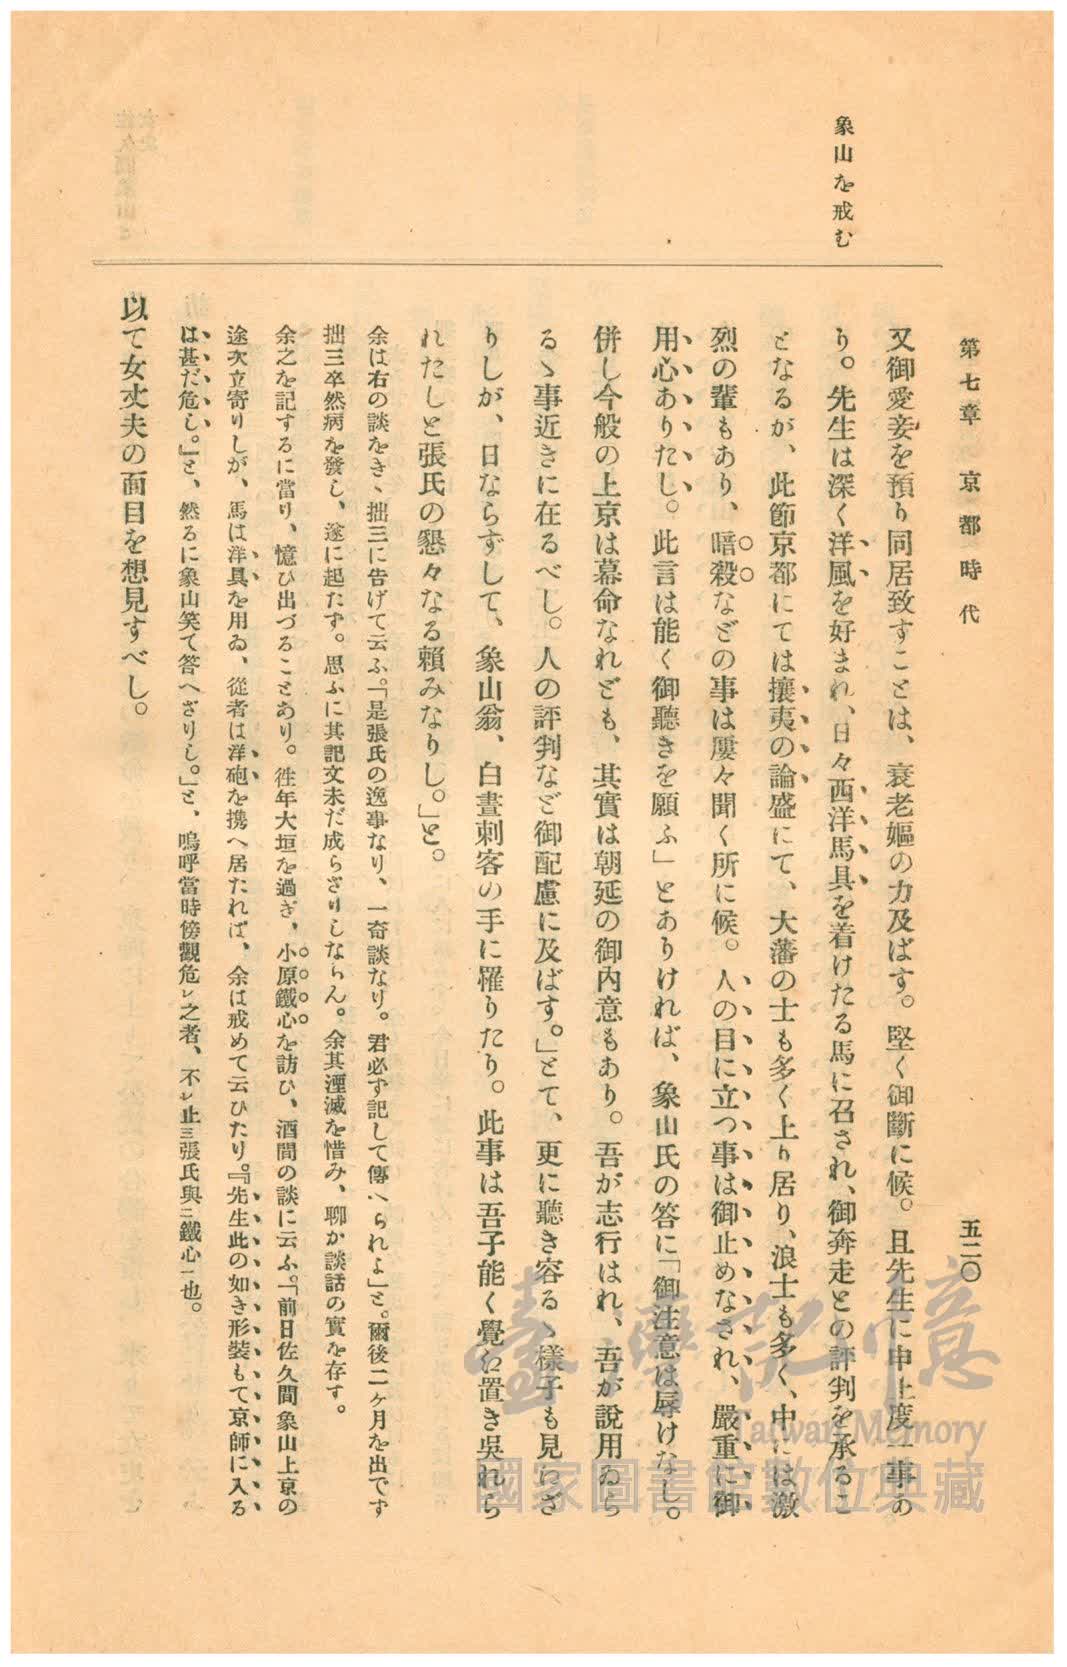 第七章 京都時代 五二〇
象山を戒む
又御愛妾を預り同居致すことは、衰老嫗の力及ばす。堅く御斷に候。且先生に申上度一事あ
り。先生は深く洋風を好まれ、日々西洋馬具を着けたる馬に召され、御奔走との評判を承るこ
となるが、此節京都にては攘夷の論盛にて、大藩の士も多く上り居り、浪士も多く、中には激
烈の輩もあり、暗殺などの事は屢々聞く所に候。人の目に立つ事は御止めなされ、嚴重に御
用心ありたし。此言は能く御聽きを願ふ」とありければ、象山氏の答に「御注意は辱けなし。
併し今般の上京は幕命なれども、其實は朝廷の御內意もあり。吾が志行はれ、吾が說用ゐら
るゝ事近きに在るべし。人の評判など御配慮に及ばす。」とて、更に聽き容るゝ樣子も見らざ
りしが、日ならずして、象山翁、白晝刺客の手に罹りたり。此事は吾子能く覺え置き吳れら
れたしと張氏の懇々なる賴みなりし。」と。
余は右の談をきゝ拙三に告げて云ふ。「是張氏の逸事なり、一奇談なり。君必ず記して傳へられよ」と。爾後二ケ月を出です
拙三卒然病を發し、遂に起たず。思ふに其記文未だ成らざりしならん。余其湮滅を惜み、聊か談話の實を存す。
余之を記するに當り、憶ひ出づることあり。徃年大垣を過ぎ、小原鐵心を訪ひ、酒間の談に云ふ。「前日佐久間象山上京の
途次立寄りしが、馬は洋具を用ゐ、從者は洋砲を携へ居たれば、余は戒めて云ひたり。『先生此の如き形裝もて京師に入る
は甚だ危し。』と、然るに象山笑て答へざりし。」と、嗚呼當時傍觀危レ之者、不レ止三張氏與二鐵心一也。
以て女丈夫の面目を想見すべし。
臺灣記憶
Taiwan Memory
國家圖書館數位典藏